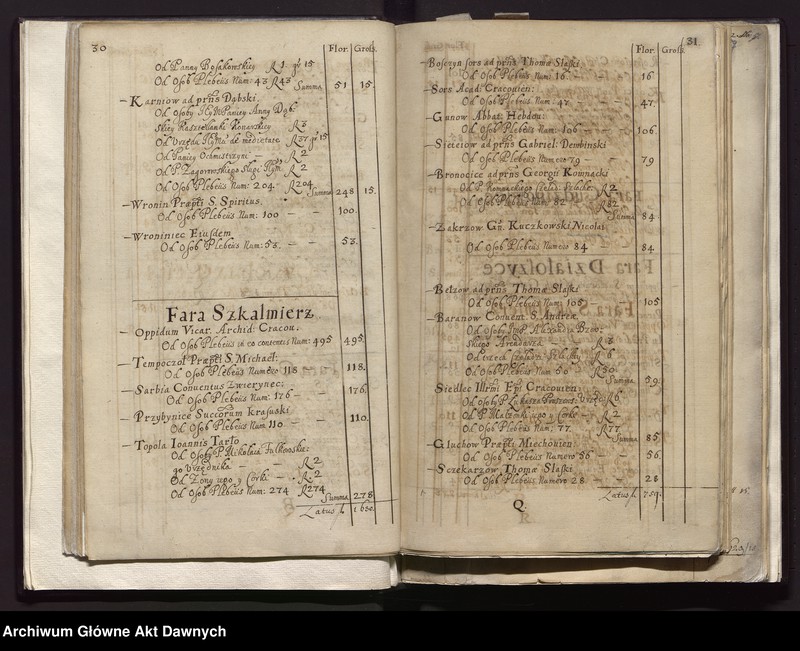 30
Flor. Gross.
Od Panny Bosakowskiy R 1. gr 15
Od Osob Plebeüs Num: 43 R 43 Summa 51 15.
– Karniow ad prñs Dąbski.
Od Osoby JeyMPaniey Anny Dąb:
skiey Kasztellanki Konarskiey R 3
Od Urzęda JeyMci de medietate R 37 gr 15
Od Paniey Ochmistrzyni – R 2
Od P. Zagorowskiego Slugi JeyM. R 2
Od Osob Plebeüs Num: 204 – R 204 Summa 248 15.
– Wronin Præpti S. Spiritus.
Od Osob Plebeüs Num: 100 – – 100.
– Wroniniec Eiusdem
Od Osob Plebeüs Num: 53. – – 53.
Fara Szkalmierz
– Oppidum Vicar. Archid: Cracou.
Od Osob Plebeüs in eo contentis Num: 495 495.
– Tempoczoł Præpti S. Michael:
Od Osob Plebeüs Numero 118 – – 118.
– Sarbia Conuentus Zwierynec:
Od Osob Plebeüs Num: 176 – – 176.
– Przybynice Succorum
Od Osob Plebeüs Num 110 – – 110.
– Topola Ioannis Tarło
Od Osoby P Mikołaia Falkowskie:
go Urzędnika – – R 2
Od Zony iego y Corki – R. 2
Od Osob Plebeüs Num: 274 R 274
Summa 278
Latus f. 1630.
31.
Flor. Gross.
– Boszczyn sors ad prñs Thomæ Slaski
Od Osob Plebeüs Num: 16 – – 16
– Sors Acad: Cracouien:
Od Osob Plebeüs Num: 47 – – 47.
– Gunow Abbat: Hebdou:
Od Osob Plebeüs Num: 106 – – 106
– Sieteiow ad prñs Gabriel: Dembinski
Od Osob Plebeüs Numero 79 – – 79
– Bronocice ad prñs Georgii Kownacki
Od P. R 2
Od Osob Plebeüs Num 82 R 82
Summa 84
– Zakrzow Gñ. Kuczkowski Nicolai
Od Osob Plebeüs Numero 84 – 84
– Bełzow ad prñs Thomæ Slaski
Od Osob Plebeüs Num: 105 – – 105
– Baranow Conuent. S. Andreæ
Od Osoby Alexandra Brzo:
skiego Arendarza – R 3
Od trzech R 6
Od Osob Plebeüs Num 50 R 50
Summa 59.
– Siedlec Illrmi Epi Cracouien
Od Osoby P Łukasza R 6
Od P. iego y Corki – R 2
Od Osob Plebeüs Num: 77 R 77
Summa 85.
– Gluchow Præpti Miechouien:
Od Osob Plebeüs Numero 56 – 56.
– Sczekarzow Thomæ Slaski
Od Osob Plebeüs Numero 28 – – 28
Latus f. 759.
Q.
Archiwum Główne Akt Dawnych